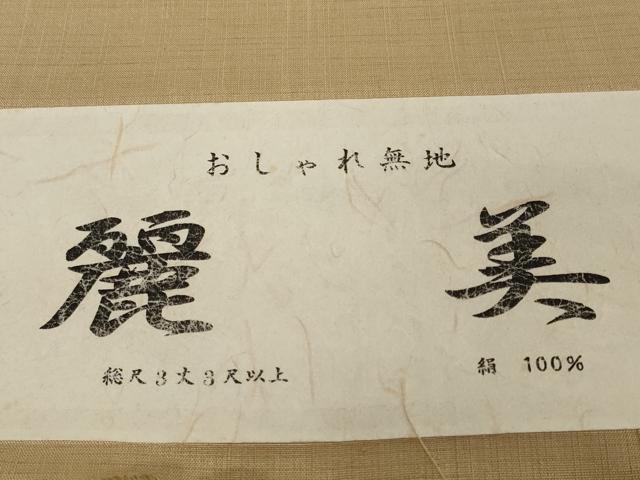 おしゃれ無地
麗美
総尺3丈3尺以上
絹 100%